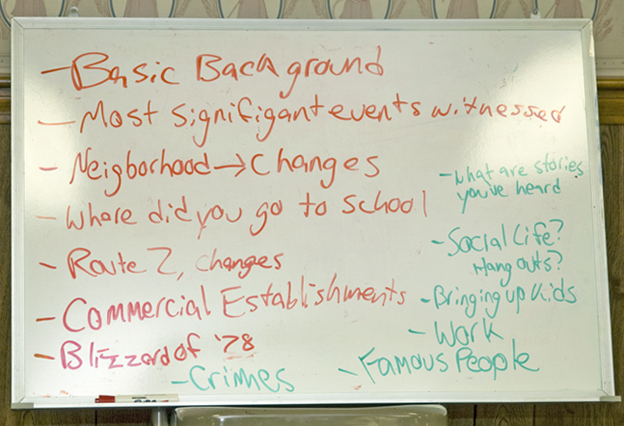 - Basic Background
- Most signifigant events witnessed
- Neigborhood → Changes
- Where did you go to school
- Route 2, changes
- Commercial Establishments
- Blizzard of '78
- Crimes
- what are stories
you've heard
- Social Life?
Hang outs?
- Bringing up Kids
- Work
- Famous People